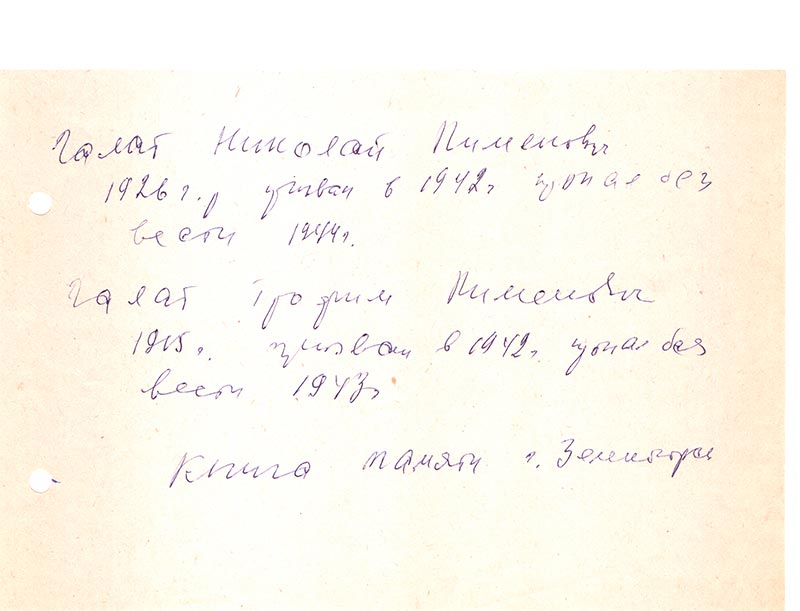 Галат Николай Пименович
1926 г.р призван в 1942г пропал без
вести 1944г.
Галат Трофим Пименович
1915г. призван в 1942г. пропал без
вести 1943г
Книга памяти г. Зеленогорск